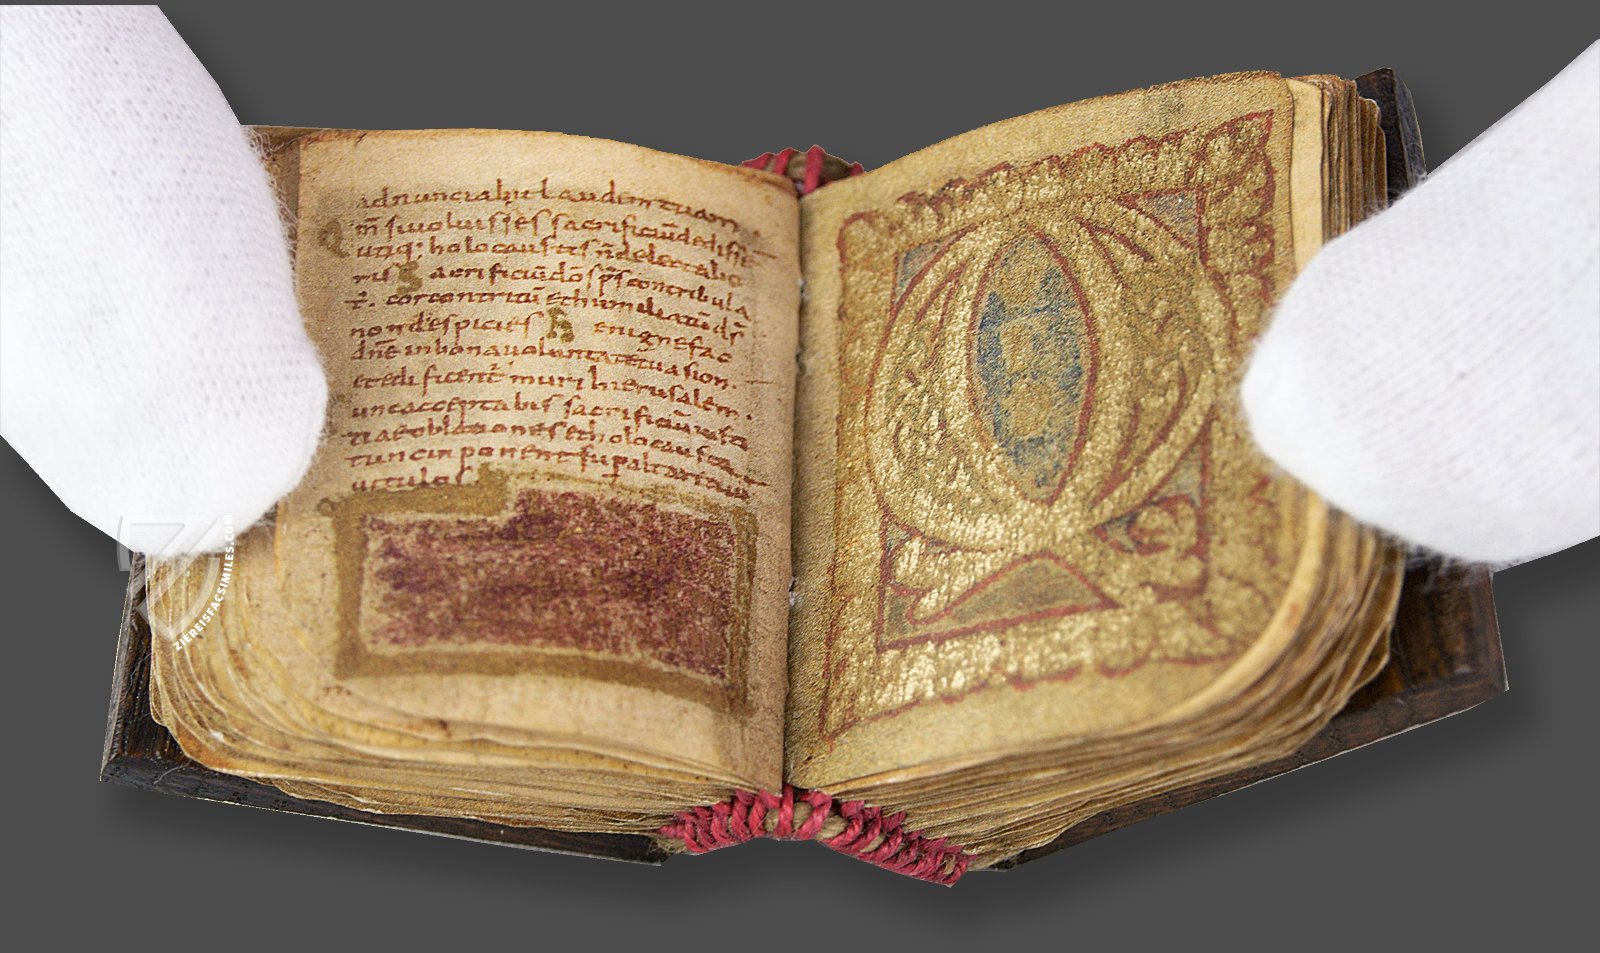 adnunciabit laudem tuam
Qm̄ si uoluisses sacrificiū dedisse
utiq; holocaustis n̄ delectabe
ris Sacrificiū dō sp̄s contribula
t; cor contritū et humiliatū ds̄
non despicies Benigne fac
dn̄e in bona uoluntate tua sion.
et edificent̄ muri hierusalem.
unc acceptabis sacrificiū iusti
tiae oblationes et holocausta
tunc in ponent sup altare tuū
uitulos
ZIEREISFACSIMILES.COM